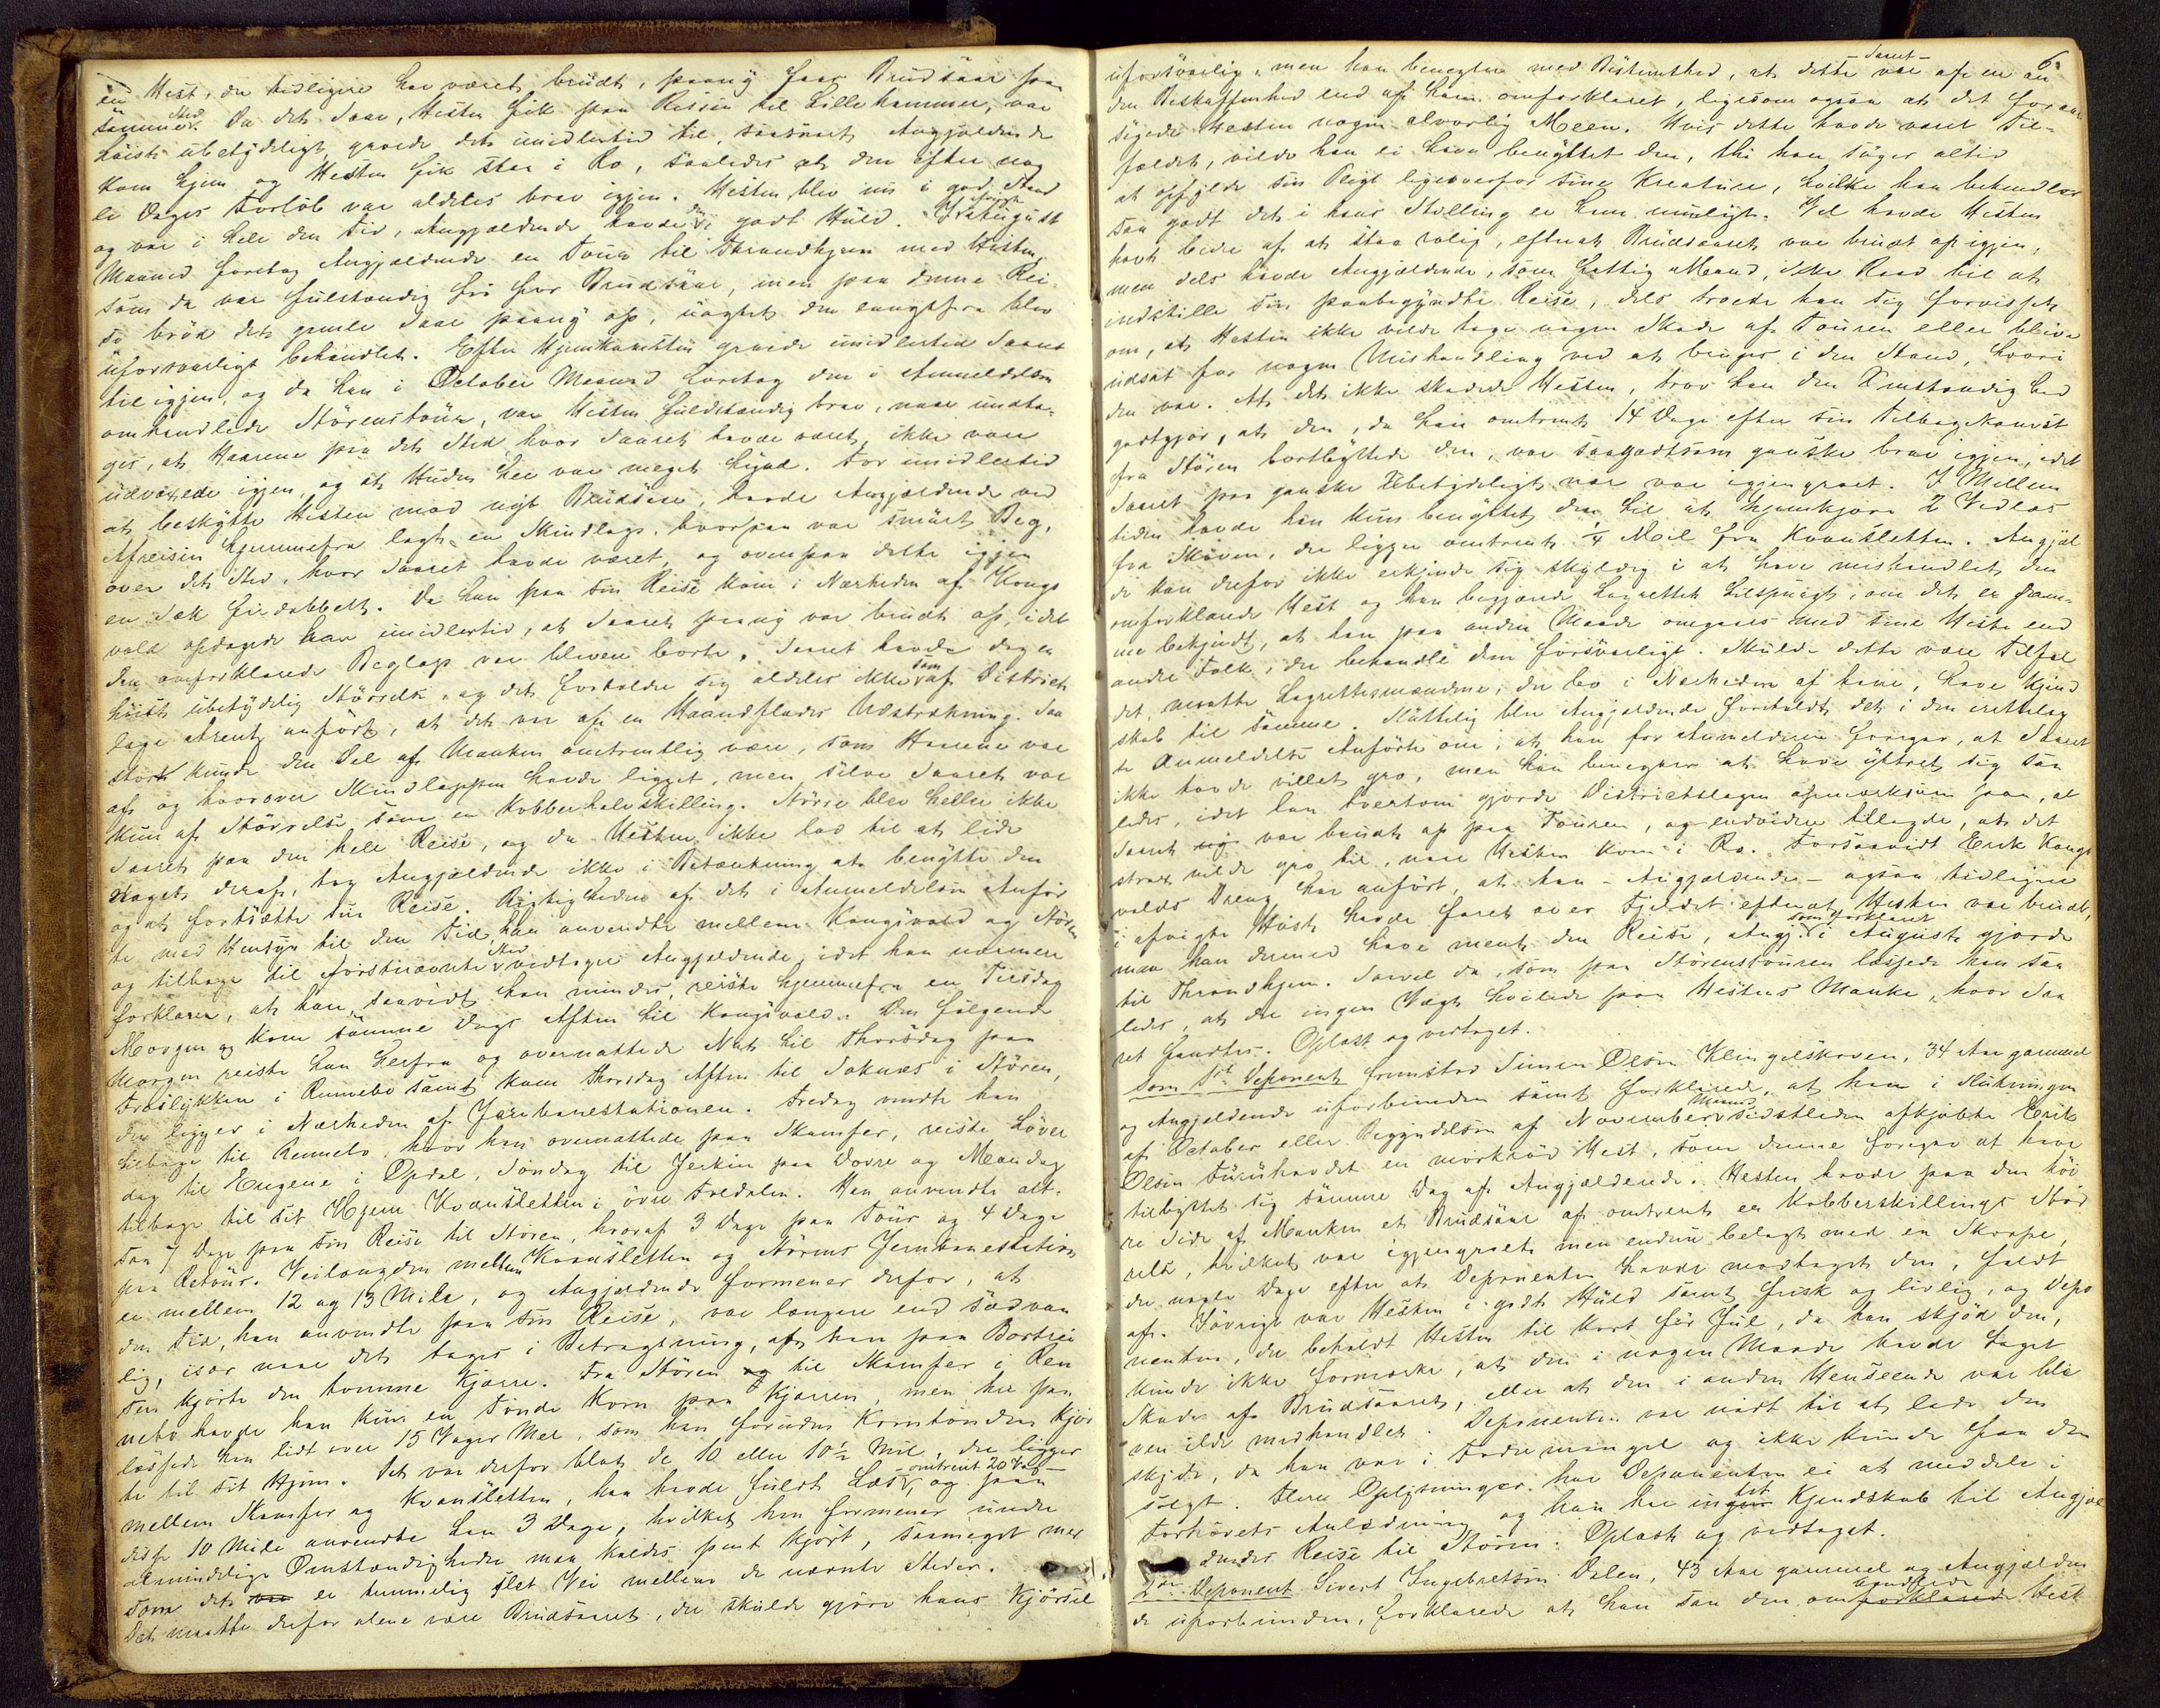 en Hest, der tidligere har været brudt, paany faar Brudsaar paa
samme Sted. Da det Saar, Hesten fik paa Reisen til Lillehammer, var
høist ubetydeligt, groede det imidlertid til, saasnart Angjældende
kom hjem og Hesten fik staa i Ro, saaledes at den efter nog
le Dages Forløb var aldeles brav igjen. Hesten blev nu i god Stand
og var i hele den Tid, Angjældende havde den, i godt Huld. I August
Maaned foretog Angjældende en Tour til Throndhjem med Hesten,
som da var fuldstændig fri for Brudsaar, men paa denne Rei
se brød det gamle Saar paany op, uagtet den langtfra blev
uforsvarligt behandlet. Efter Hjemkomsten groede imidlertid Saaret
til igjen, og da han i October Maaned foretog den i Anmeldelsen
omhandlede Størenstour, var Hesten fuldstændig brav, naar undta-
ges, at Haarene paa det Sted hvor Saaret havde været, ikke vare
udvoxede igjen, og at Huden her var meget tynd. For imidlertid
at beskytte Hesten mod nyt Brudsaar, havde Angjældende ved
Afreisen hjemmefra lagt en Skindlap, hvorpaa var smurt Beg,
over det Sted, hvor Saaret havde været, og ovenpaa dette igjen
en Sæk firdobbelt. Da han paa sin Reise kom i Nærheden af Kongs
vold opdagede han imidlertid, at Saaret paany var brudt op, idet
den omforklarede Beglap var bleven borte. Saaret havde dog en
høist ubetydelig Størrelse, og det forholder sig aldeles ikke som af Districts
læge Arentz anført, at det var af en Haandflades Udstrækning. Saa
stort kunde den Del af Manken omtrentlig være, som Haarene var
af og hvorover Skindlappen havde ligget, men selve Saaret var
kun af Størrelse som en Kobberhalvskilling. Større blev heller ikke
Saaret paa den hele Reise, og da Hesten ikke lod til at lide
Noget deraf, tog Angjældende ikke i Betænkning at benytte den
og at fortsætte sin Reise. Rigtigheden af det i Anmeldelsen Anfør
te med Hensyn til den Tid han anvendte mellem Kongsvold og Støren
og tilbage til førstnævnte Sted vedtager Angjældende, idet han nærmere
forklarer, at han, saavidt han mindes, reiste hjemmefra en Tirsdag
Morgen og kom samme Dags Aften til Kongsvold. Den følgende
Morgen reiste han herfra og overnattede Nat til Thorsdag paa
Froslykken i Rennebo samt kom Thorsdag Aften til Soknæs i Støren,
der ligger i Nærheden af Jernbanestationen. Fredag vendte han
tilbage til Rennebo, hvor han overnattede paa Skamfer, reiste Løver
dag til Engene i Opdal, Søndag til Jerkin paa Dovre og Mandag
tilbage til sit Hjem Kvansletten i øvre Foldalen. Han anvendte alt-
saa 7 Dage paa sin Reise til Støren, hvoraf 3 Dage paa Tour og 4 Dage
paa Retour. Veilængden mellem Kvansletten og Størens Jernbanestation
er mellem 12 og 13 Mile, og Angjældende formener derfor, at
den Tid, han anvendte paa sin Reise, var længere end sædvan
lig, især naar det tages i Betragtning, at han paa Bortrei
sen kjørte den tomme Kjærre. Fra Støren og til Skamfer i Ren
nebo havde han kun en Tønde Korn paa Kjærren, men her paa
læssede han lidt over 15 Voger Mel, som han foruden Korntønden kjør
te til sit Hjem. Det var derfor blot de 10 eller 10½ Mil, der ligger
mellem Skamfer og Kvansletten, han havde fuldt Læs, omtrent 20 Vog og paa
disse 10 Mile anvendte han 3 Dage, hvilket han formener under
almindelige Omstændigheder maa kaldes pent kjørt, saameget mer
som det er temmelig slet Vei mellem de nævnte Steder.
Det maatte derfor alene være Brudsaaret, der skulde gjøre hans Kjørsel
6
uforsvarlig, men han benegter med Bestemthed, at dette Saaret var af en an
den Beskaffenhed end af ham omforklaret, ligesom ogsaa at det foraar
sagede Hesten nogen alvorlig Meen. Hvis dette havde været Til-
fældet, vilde han ei have benyttet den, thi han søger altid
at opfylde sin Pligt ligeoverfor sine Kreature, hvilke han behandler
saa godt det i hans Stilling er ham muligt. Vel havde Hesten
havt bedre af at staa rolig, efterat Brudsaaret var brudt op igjen,
men dels havde Angjældende, som fattig Mand, ikke Raad til at
indstille sin paabegyndte Reise, dels troede han sig forvisset
om, at Hesten ikke vilde tage nogen Skade af Touren eller blive
udsat for nogen Mishandling ved at bruges i den Stand, hvori
den var. At det ikke skadede Hesten, tror han den Omstændighed
godtgjør, at den, da han omtrent 14 Dage efter sin Tilbagekomst
fra Støren bortbyttede den, var saagodtsom ganske brav igjen, idet
Saaret paa ganske Ubetydeligt nær var igjengroet. I Mellem
tiden havde han kun benyttet den til at hjemkjøre 2 Vedlæs
fra Skoven, der ligger omtrent ¼ Mil fra Kvansletten. Angjæl
de kan derfor ikke erkjende sig skyldig i at have mishandlet den
omforklarede Hest og han begjærede Lagrettet tilspurgt, om det er sam-
me bekjendt, at han paa anden Maade omgaaes med sine Heste end
andre Folk, der behandle dem forsvarligt. Skulde dette være Tilfæl
det, maatte Lagrettesmændene, der bo i Nærheden af ham, have Kjend
skab til samme. Sluttelig blev Angjældende foreholdt det i den irettelag
te Anmeldelse Anførte om, at han for Anmelderen foregav, at Saaret
ikke havde villet gro, men han benegter at have yttret sig saa
ledes, idet han tvertom gjorde Districtslægen opmærksom paa, at
Saaret var brudt op paa Touren, og endvidere tillagde, at det
strax vilde gro til, naar Hesten kom i Ro. Forsaavidt Erik Kongs
volds Dreng har anført, at han - Angjældende - ogsaa tidligere
i afvigte Høst havde faret over Fjeldet efterat Hesten var brudt,
maa han dermed have ment den Reise, Angj. som forklaret i August gjorde
til Throndhjem. Saavel da, som paa Størenstouren læssede han saa
ledes, at der ingen Vægt hvilede paa Hestens Manke, hvor Saa
ret fandtes. Oplæst og vedtaget.
Som 1ste Deponent fremstod Simen Olsen Klingelskoven, 34 Aar gammel
og Angjældende uforbunden samt forklarede, at han i Slutningen
af October eller Begyndelsen af November Maaned sidstleden afkjøbte Erik
Olsen Furuhovdet en mørkrød Hest, som denne foregav at have
tilbyttet sig samme Dag af Angjældende. Hesten havde paa den høi
re Side af Manken et Brudsaar af omtrent en Kobberskillings Stør
relse, hvilket var igjengroet men endnu belagt med en Skorpe,
der nogle Dage efter at Deponenten havde modtaget den, faldt
af. Iøvrigt var Hesten i godt Huld samt frisk og livlig, og Depo
nenten, der beholdt Hesten til kort før Jul, da han skjød den,
kunde ikke formærke, at den i nogen Maade havde taget
Skade af Brudsaaret, eller at den i anden Henseende var ble
ven ilde medhandlet. Deponenten var nødt til at lade den
skyde, da han var i Fodermangel og ikke kunde faa den
solgt. Flere Oplysninger har Deponenten ei at meddele i
Forhørets Anledning og han har intet Kjendskab til Angjæl
dendes Reise til Støren. Oplæst og vedtaget.
2den Deponent Sivert Ingebretsen Dalen, 43 Aar gammel og Angjælden
de uforbunden, forklarede at han saa den omhandlede Hest